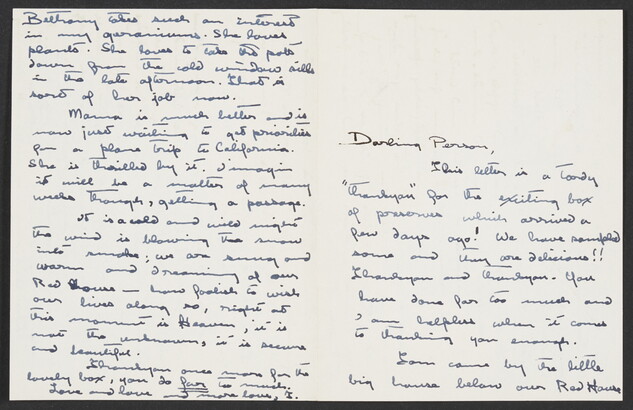 Darling Person,
This letter is a tardy
"thankyou" for the exciting box
of preserves which arrived a
few days ago! We have sampled
some and they are delicious!!
Thankyou and thankyou. You
have done far too much and
I am helpless when it comes
to thanking you enough.
Tom came by the little
big house below our Red House
Bethany takes such an interest
in my geraniums. She loves
plants. She loves to take the pots
down from the cold window sills
in the late afternoon. That is
sort of her job now.
Mama is much better and is
now just waiting to get priorities
for a plane trip to California.
She is thrilled by it. I imagin
it will be a matter of many
weeks though, getting a passage.
It is a cold and wild night
the wind is blowing the snow
into smoke; we are snug and
warm and dreaming of our
Red House — how foolish to wish
our lives along so, right at
this moment is Heaven, it is
not the unknown, it is secure
and beautiful.
Thankyou once more for the
lovely box, you do far to much.
Love and love and more love, I.